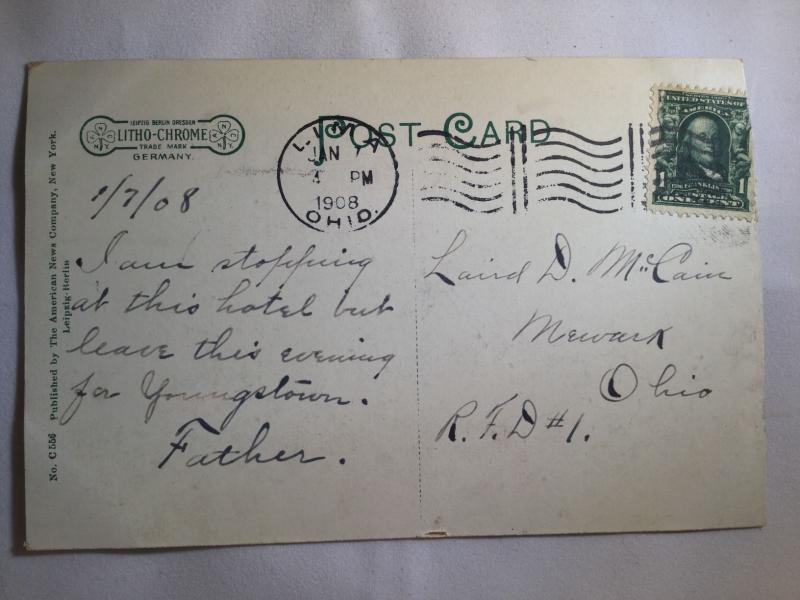 LEIPZIG BERLIN DRESDEN
LITHO-CHROME
TRADE MARK
GERMANY.
POST CARD
LIMA
JAN 7
4 PM
1908
OHIO.
UNITED STATES OF
AMERICA
1 1
ONE CENT
1/7/08
I am stopping
at this hotel but
leave this evening
for Youngstown.
Father.
Laird D. McCain
Newark
Ohio
R.F.D #1.
No. C 556 Published by The American News Company, New York.
Leipzig-Berlin